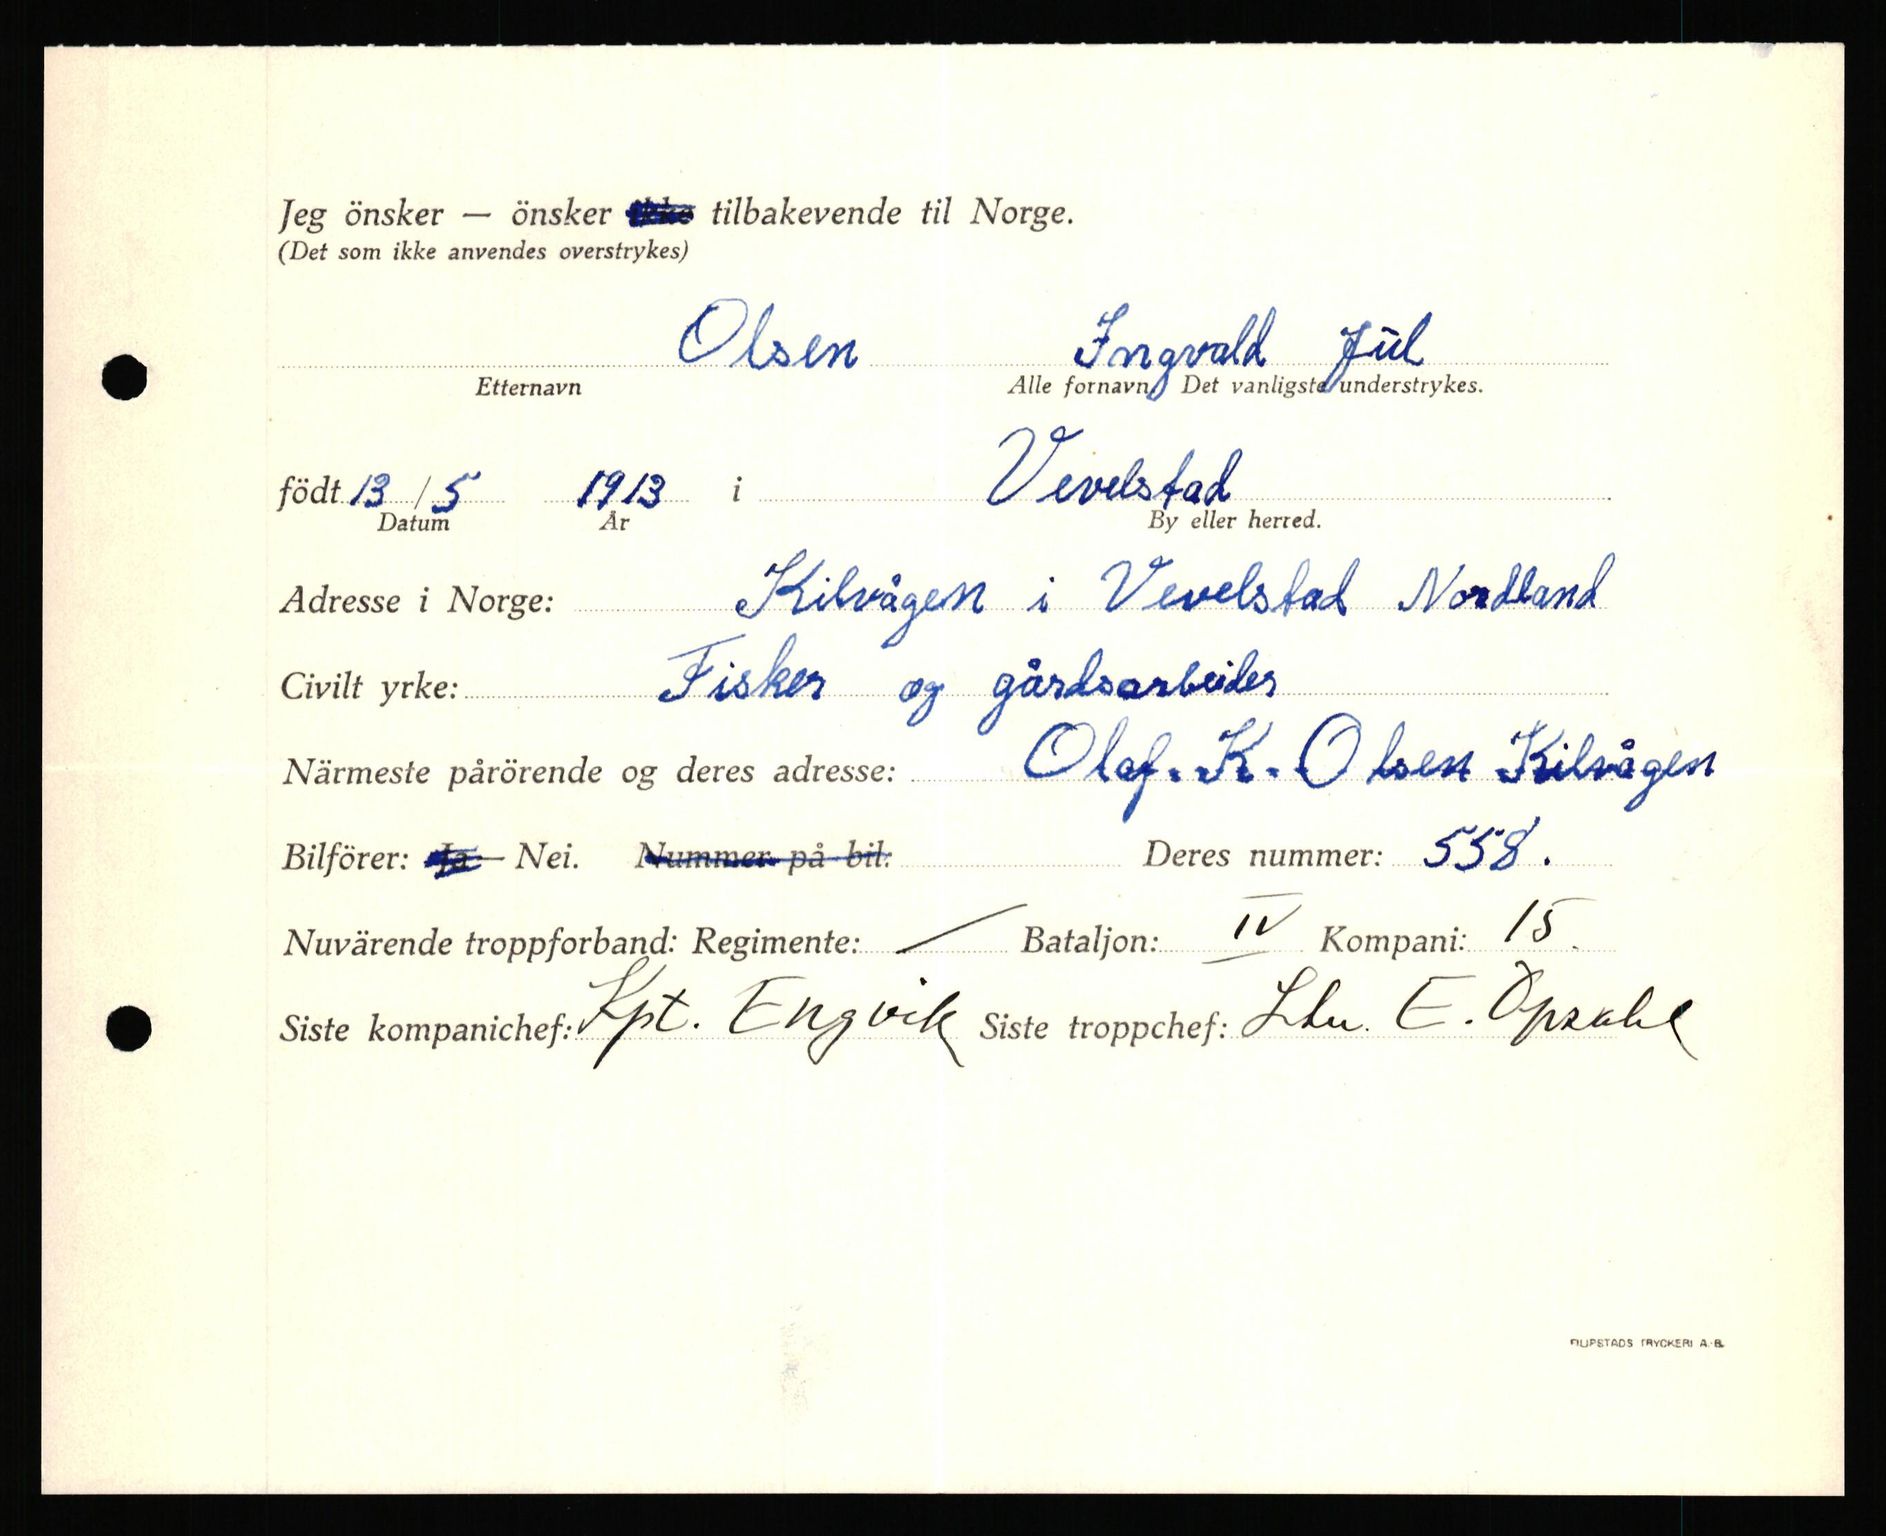 Jeg önsker — önsker ikke tilbakevende til Norge.
(Det som ikke anvendes overstrykes)
Olsen Ingvald Júl
Etternavn Alle fornavn. Det vanligste understrykes.
födt 13/5 1913 i Vevelstad
Datum År By eller herred.
Adresse i Norge: Kilvågen i Vevelstad Nordland
Civilt yrke: Fisker og gårdsarbeider
Närmeste pårörende og deres adresse: Olaf. K. Olsen Kilvågen
Bilförer: Ja — Nei. Nummer på bil: Deres nummer: 558.
Nuvärende troppforband: Regimente: / Bataljon: IV Kompani: 15.
Siste kompanichef: Kpt. Engvik Siste troppchef: E. Opsahl
FILIPSTADS TRYCKERI A.-B.